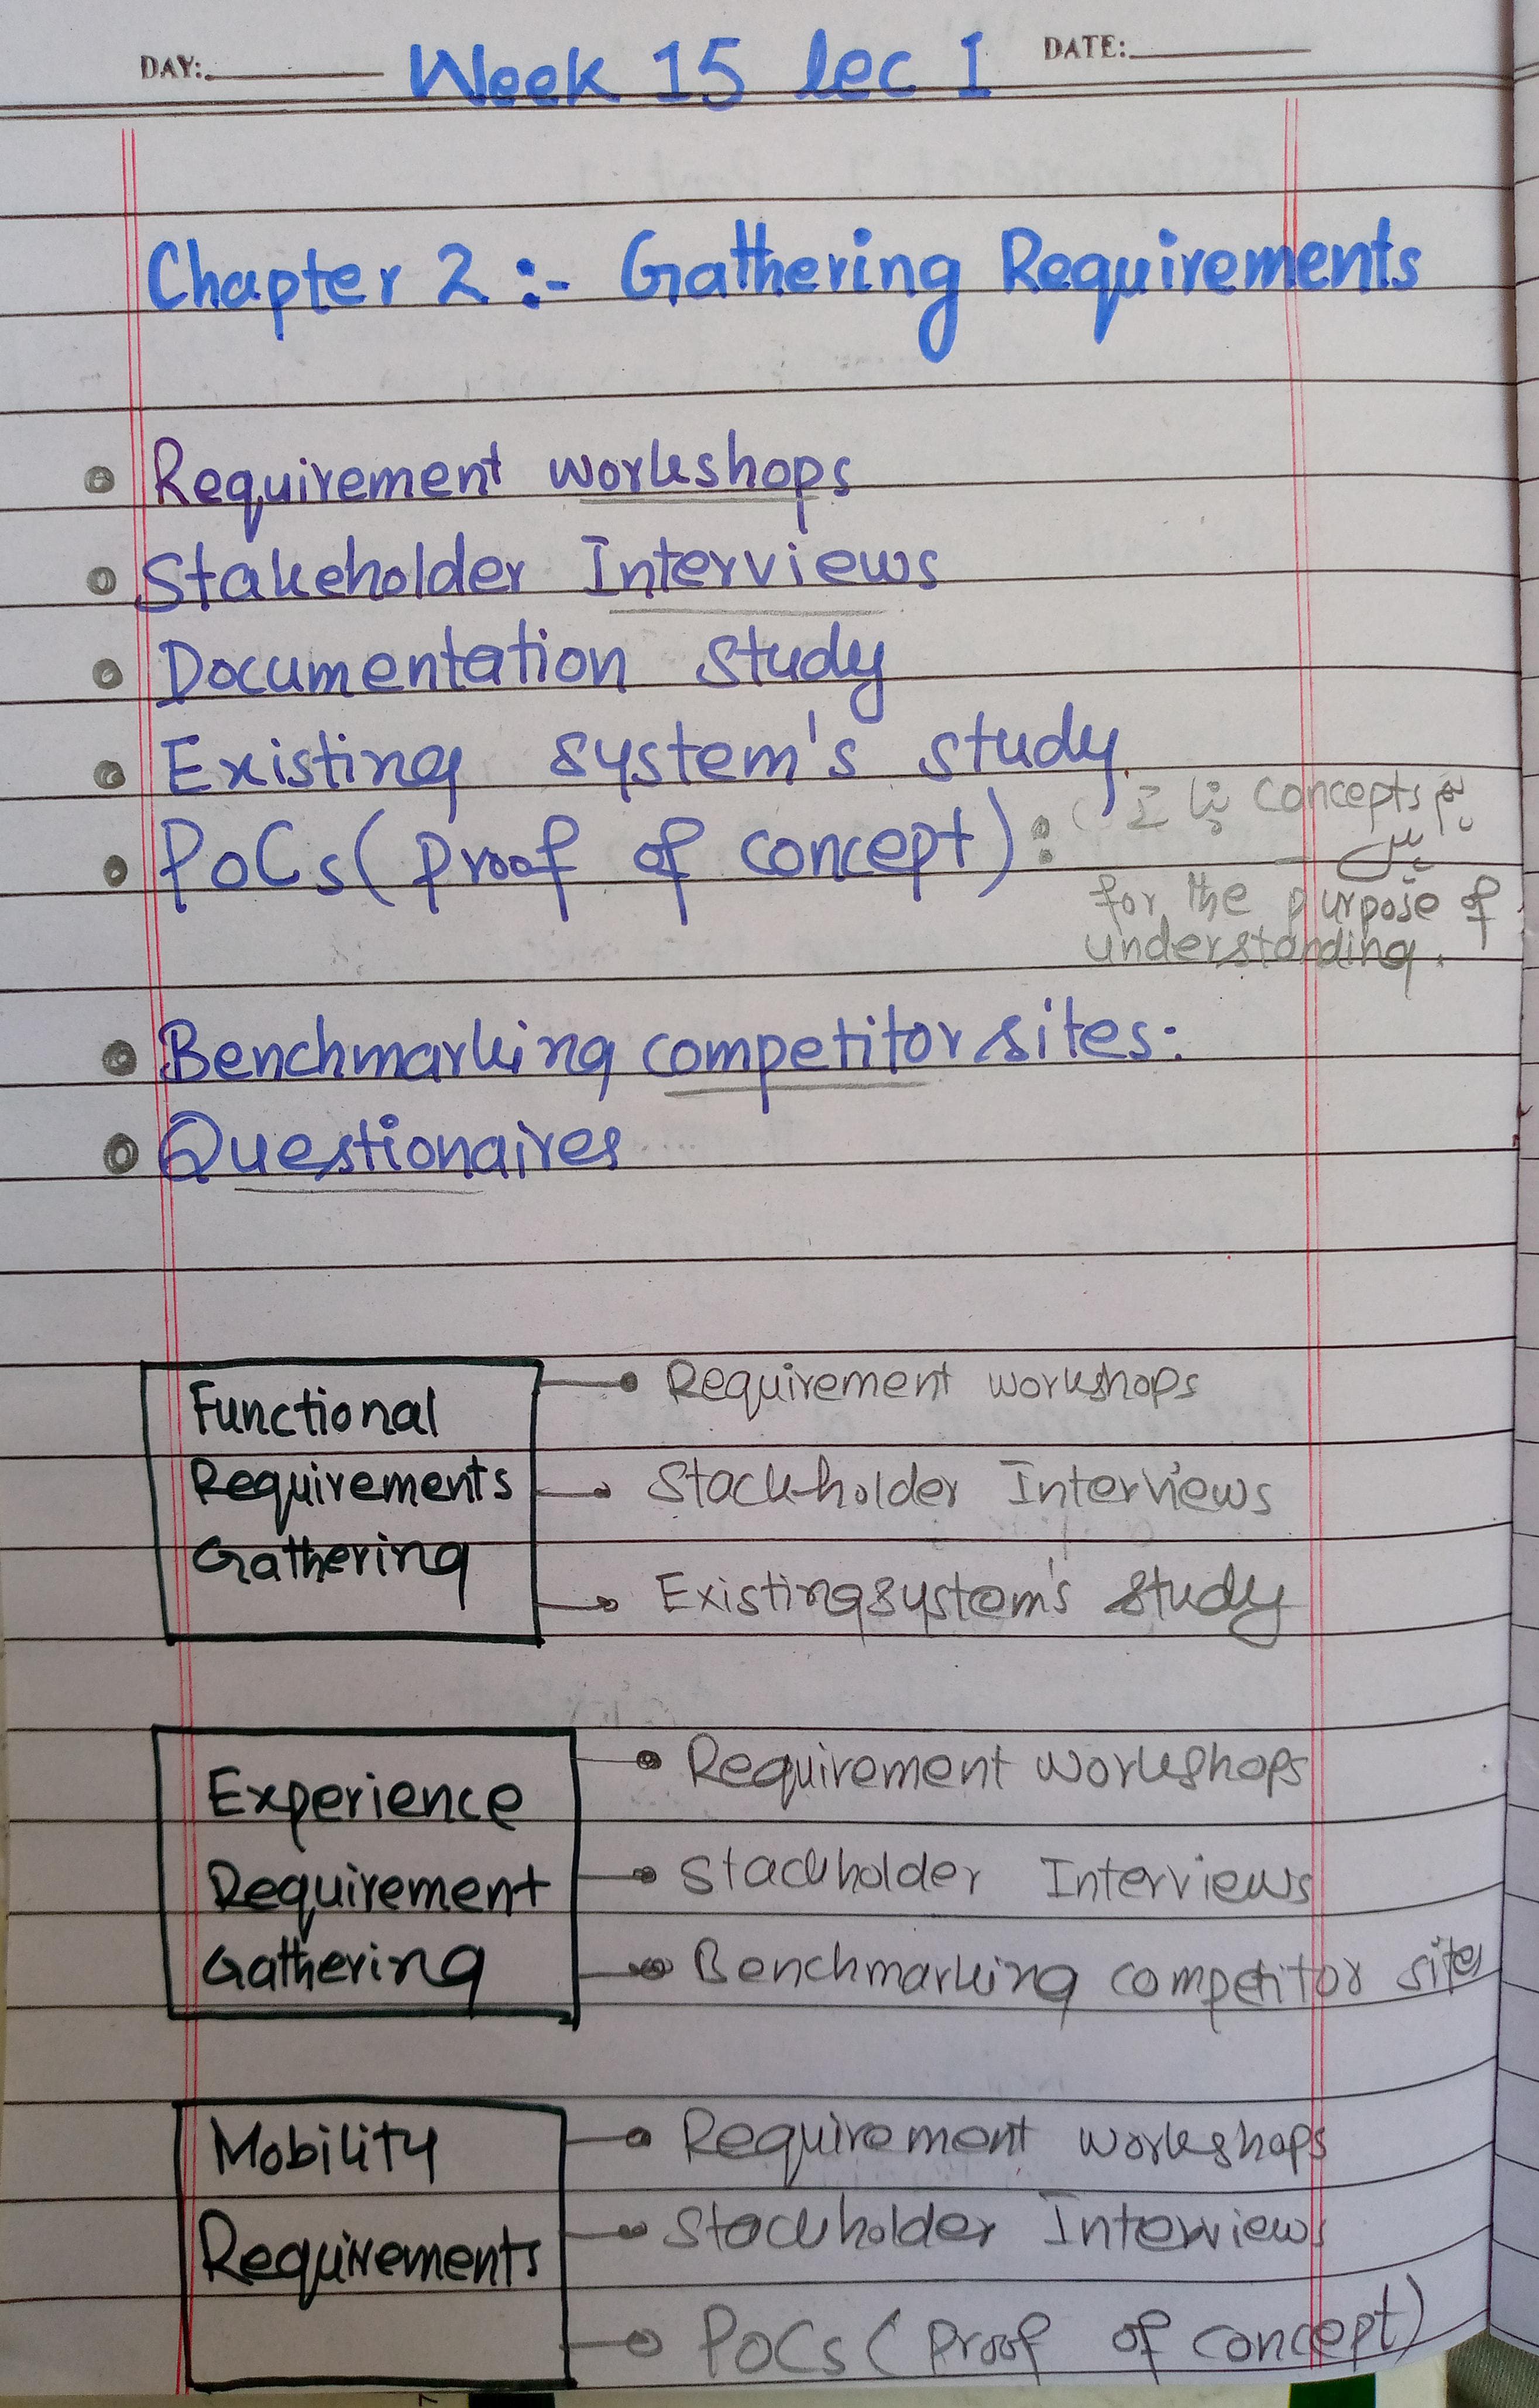 DAY: Week 15 lec 1 DATE:
Chapter 2 :- Gathering Requirements
Requirement workshops
Stakeholder Interviews
Documentation study
Existing system's study.
PoCs (proof of concept) :
concepts
for the purpose of
understanding.
Benchmarking competitor sites:
Questionaires
Functional
Requirements
Gathering
Requirement workshops
Stackholder Interviews
Existing system's study
Experience
Requirement
Gathering
Requirement workshops
Stackholder Interviews
Benchmarking competitor sites
Mobility
Requirements
Requirement workshops
Stackholder Interviews
PoCs (Proof of concept)